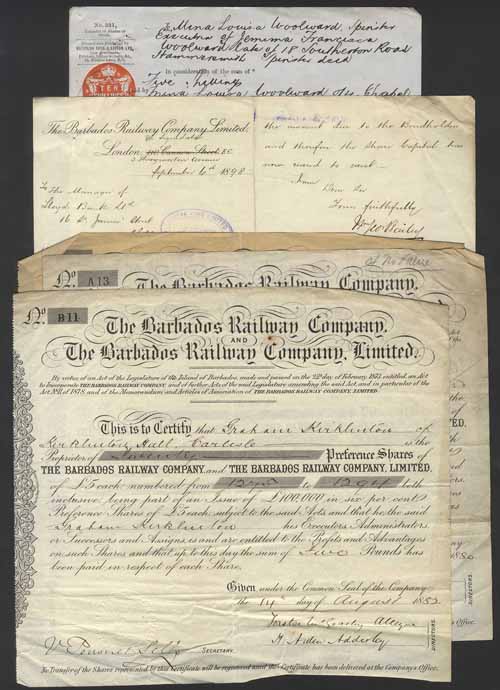 No. 331.
To Mina Louisa Woolward, Spinster
Executrix of Jemima Francisca
Woolward late of 18 Southerton Road
Hammersmith Spinster decd
In consideration of the sum of
Five shillings
Mina Louisa Woolward
The Barbados Railway Company, Limited.
London, Cannon Street E.C.
September 6th 1898
To The Manager of
Lloyds Bank Ltd
16 St. James Street
the amount due to the Bondholders
and therefore the Share Capital has
now ceased to exist
I am
Dear Sir
Yours faithfully
No. A13
The Barbados Railway Company,
of No Value
No. B11
The Barbados Railway Company,
AND
The Barbados Railway Company, Limited.
By virtue of an Act of the Legislature of the Island of Barbados, made and passed on the 22nd day of February 1873 entitled, an Act
to Incorporate THE BARBADOS RAILWAY COMPANY, and of further Acts of the said Legislature amending the said Act, and in particular of the
Act No. 11 of 1878, and of the Memorandum and Articles of Association of THE BARBADOS RAILWAY COMPANY, LIMITED.
This is to Certify that Graham Kirklinton of
Kirklinton Hall, Carlisle is the
Proprietor of Seventy Preference Shares of
THE BARBADOS RAILWAY COMPANY, AND THE BARBADOS RAILWAY COMPANY, LIMITED,
of £5 each numbered from to 1294 both
inclusive, being part of an Issue of £100,000 in six per cent
Preference Shares of £5 each, subject to the said Acts and that he the said
Graham Kirklinton his Executors, Administrators
or Successors and Assigns is and are entitled to the Profits and Advantages
on such Shares and that up to this day the sum of Five Pounds has
been paid in respect of each Share.
Given under the Common Seal of the Company
the 14th day of August 1882
H. Arden Adderley
DIRECTORS.
SECRETARY.
No Transfer of the Shares represented by this Certificate will be registered until this Certificate has been delivered at the Company's Office.
1880
DIRECTORS.
Office.